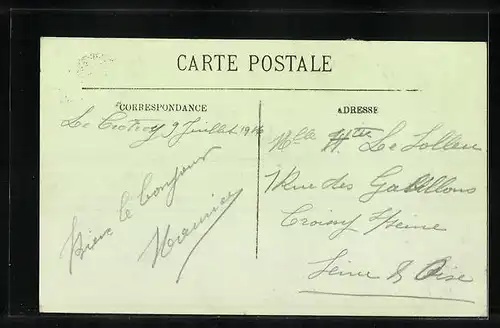 CARTE POSTALE
CORRESPONDANCE
Le Crotoy 9 Juillet 1916
Bien le bonjour
Meunier
ADRESSE
Mlle Le
Rue des Gabillons
Croissy s/Seine
Seine & Oise